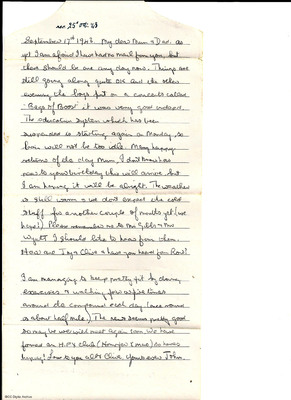 rec 25th Oct. 43
September 17th 1943. My dear Mum & Dad. as
yet I am afraid I have had no mail from you, but
there should be some any day now. Things are
still going along quite O.K. and the other
evening the boys put on a concert called
"Bags O' Moos" it was very good indeed.
The education system which has been
suspended is starting again on Monday, so
time will not be too idle. Many happy
returns of the day Mum, I don't know how
near to your birthday this will arrive but
I am hoping it will be alright. The weather
is still warm & we don't expect the cold
stuff for another couple of months yet (we
hope). Please remember me to Mrs Gibbs & Mrs
Wyatt I should like to hear from them.
How are Joy & Clive & have you heard from Ron?
I am managing to keep pretty fit by doing
exercises & walking for up five times
around the compound each day (once round
is about half mile.) The news seems pretty good
so maybe we will meet again soon. We have
formed an H.F.Y. Club (Home for Xmas) so heres
hoping! Love to you all & Clive. Yours ever John.
IBCC Digital Archive